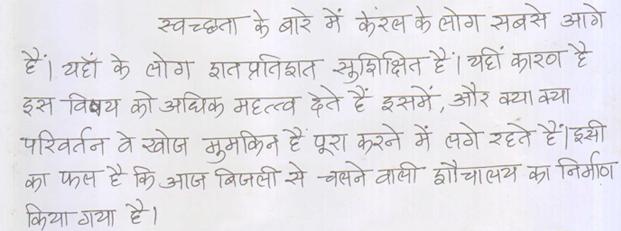 स्वच्छता के बारे में केरल के लोग सबसे आगे
हैं। यहाँ के लोग शतप्रतिशत सुशिक्षित हैं। यहीं कारण है
इस विषय को अधिक महत्त्व देते हैं इसमें, और क्या क्या
परिवर्तन वे खोज मुमकिन हैं पूरा करने में लगे रहते हैं। इसी
का फल है कि आज बिजली से चलने वाली शौचालय का निर्माण
किया गया है।